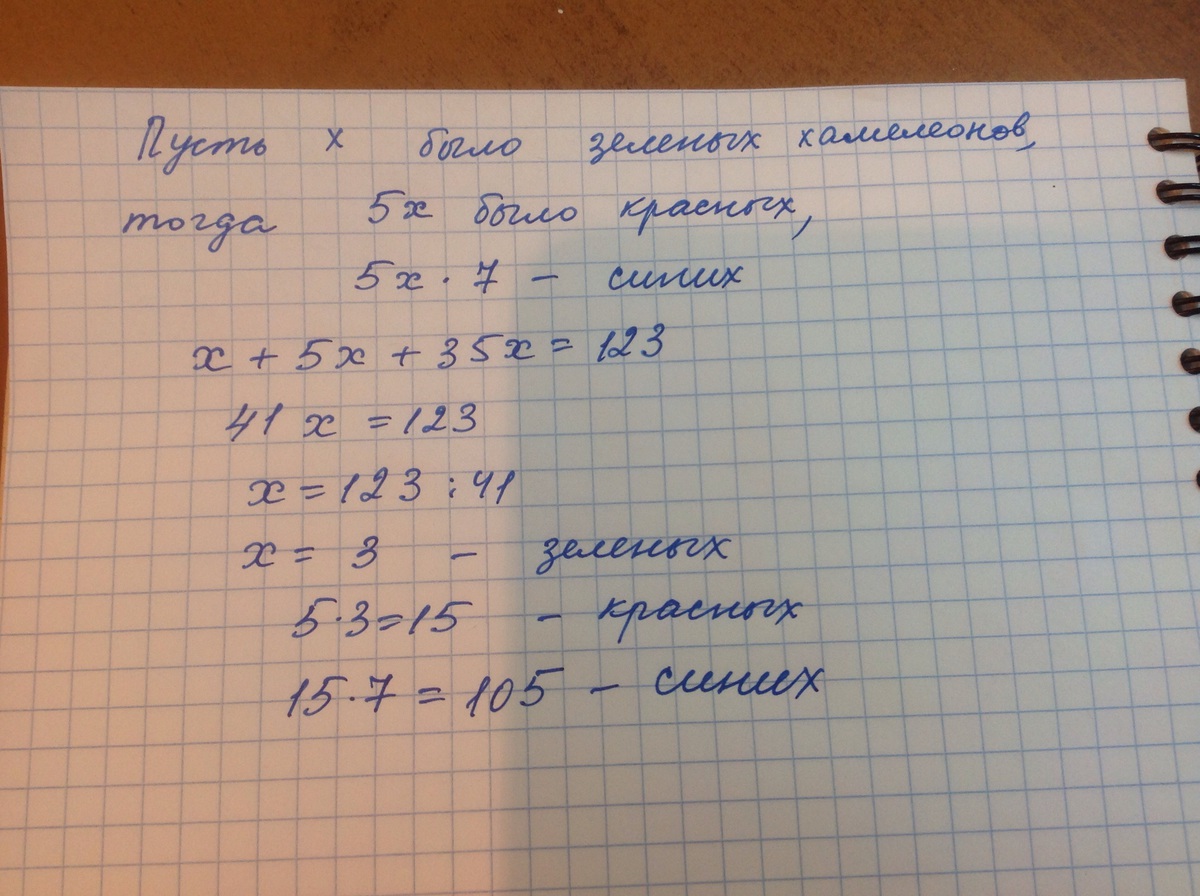 Пусть x было зеленых хамелеонов,
тогда 5x было красных,
5x · 7 – синих
x + 5x + 35x = 123
41 x = 123
x = 123 : 41
x = 3 – зеленых
5·3=15 – красных
15·7 = 105 – синих